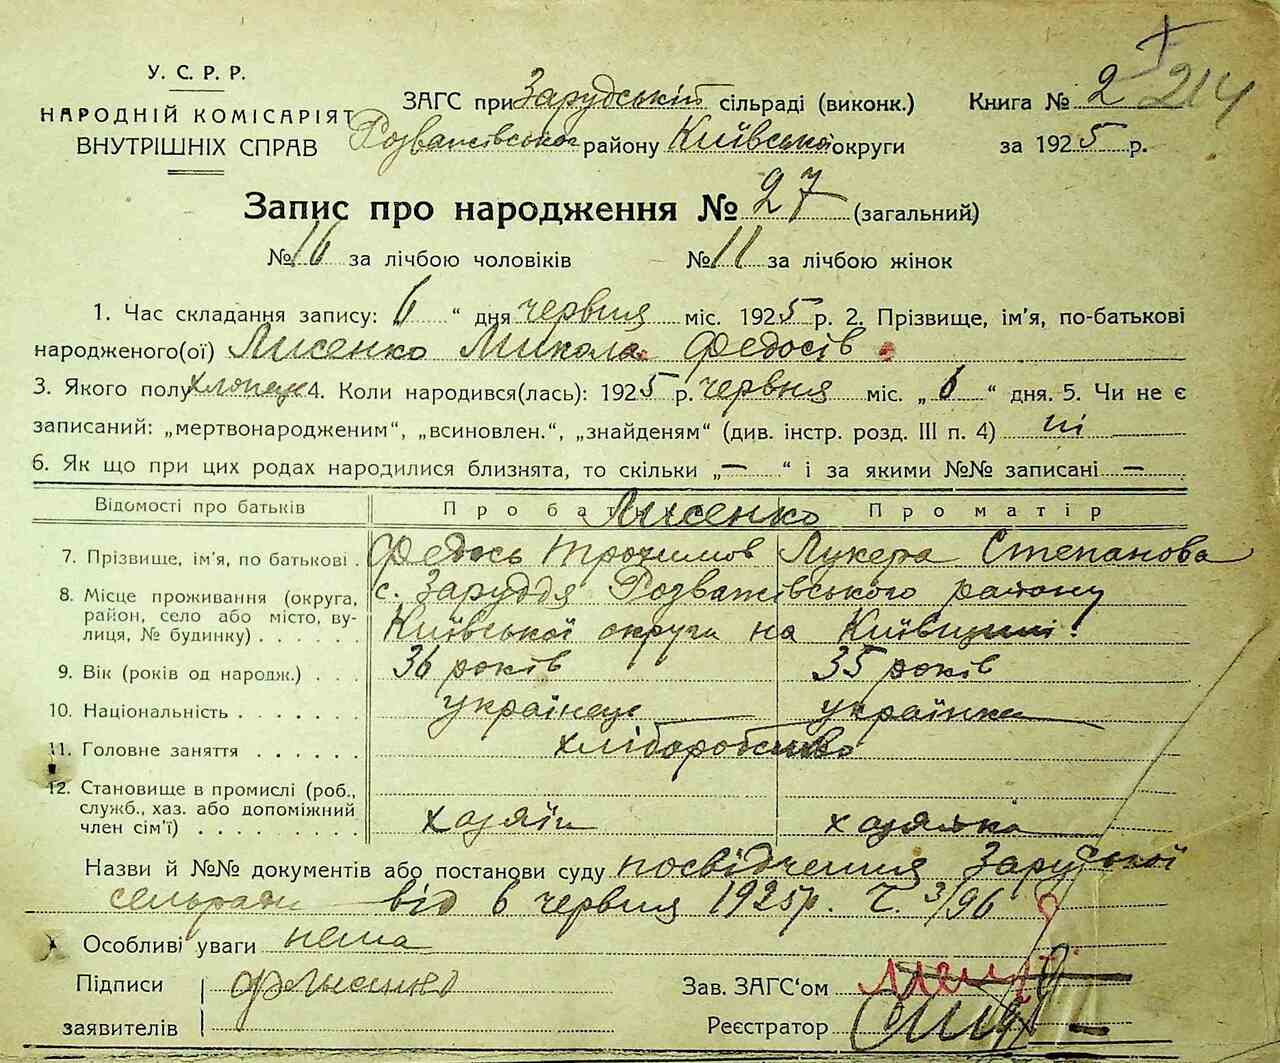 214
У. С. Р. Р.
НАРОДНІЙ КОМІСАРІЯТ
ВНУТРІШНІХ СПРАВ
ЗАГС при Зарудській сільраді (виконк.)
Розважівського району Київської округи
Книга № 2
за 1925 р.
Запис про народження № 27 (загальний)
№ 16 за лічбою чоловіків № 11 за лічбою жінок
1. Час складання запису: 6 “ дня червня міс. 1925 р. 2. Прізвище, ім’я, по-батькові
народженого(ої) Лисенко Микола Федосів
3. Якого полу хлопець 4. Коли народився(лась): 1925 р. червня міс. „ 6 “ дня. 5. Чи не є
записаний: „мертвонародженим“, „всиновлен.“, „знайденям“ (див. інстр. розд. III п. 4) ні
6. Як що при цих родах народилися близнята, то скільки „ — “ і за якими №№ записані —
Відомості про батьків Про батька Про матір
Лисенко
7. Прізвище, ім’я, по батькові . Федось Трохимов Лукера Степанова
8. Місце проживання (округа, с. Заруддя Розважівського району
район, село або місто, ву-
лиця, № будинку) . . . . . . Київської округи на Київщині.
9. Вік (років од народж.) . . . 36 років 35 років
10. Національність . . . . . . . українець українка
11. Головне заняття . . . . . . хліборобство
12. Становище в промислі (роб.,
служб., хаз. або допоміжний
член сім’ї) . . . . . . . . . хазяїн хазяйка
Назви й №№ документів або постанови суду посвідчення Зарудської
сельради від 6 червня 1925 р. Ч. 3/96
Особливі уваги нема
Підписи
заявителів
Зав. ЗАГС‘ом
Реєстратор